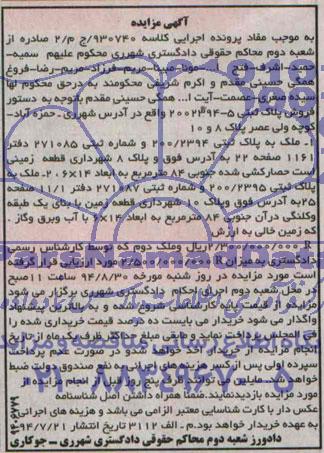 آگهی مزایده
به موجب مفاد پرونده اجرایی کلاسه ۹۳۰۷۴۰/ج م/۲ صادره از
شعبه دوم محاکم حقوقی دادگستری شهرری محکوم علیهم سمیه-
حمید-اشرف-فتح ا...-مونا-مینا-مریم-فرزاد-مریم-رضا-فروغ
همگی حسینی مقدم و اکرم شریفی محکومند به درحق محکوم لها
سیده صغری-عصمت-آیت ا... همگی حسینی مقدم باتوجه به دستور
فروش پلاک ثبتی ۵-۲۰۰۲۳۹۴ واقع در آدرس شهرری-حمزه آباد-
کوچه ولی عصر پلاک ۸ و ۱۰
۱- ملک به پلاک ثبتی ۲۰۰/۲۳۹۴ و شماره ثبتی ۲۷۱۰۸۵ دفتر
۱۱۶۱ صفحه ۲۲ به آدرس فوق و پلاک ۸ شهرداری قطعه زمینی
است حصارکشی شده جنوبی ۸۴ مترمربع به ابعاد ۱۴×۶ ۲- ملک به
پلاک ثبتی ۲۰۰/۲۳۹۵ و شماره ثبتی ۲۷۱۰۸۷ دفتر ۱۱/۱ صفحه
۲۵به آدرس فوق وپلاک ۱۰ شهرداری قطعه زمین با بنای یک طبقه
وکلنگی درآن جنوبی ۸۴ مترمربع به ابعاد ۱۴×۶ با آب وبرق وگاز.
که زمین خالی به ارزش
۲/۳۰۰/۰۰۰/۰۰۰ R ریال وملک دوم که توسط کارشناس رسمی
دادگستری به میزان R ۲/۵۰۰/۰۰۰/۰۰۰ مورد ارزیابی قرار گرفته
است مورد مزایده در روز شنبه مورخه ۹۴/۸/۳۰ ساعت ۱۱صبح
در محل شعبه دوم اجرای احکام دادگستری شهرری برگزار می شود
مزایده از قیمت پایه کارشناسی شروع شده و به بالاترین پیشنهاد
واگذار می شود خریدار می بایست ۱۰ درصد قیمت خریداری شده را
فی المجلس پرداخت نماید و مابقی مبلغ حداکثر ظرف یک ماه از تاریخ
انجام مزایده از خریدار اخذ خواهد شد و در صورت عدم پرداخت
سپرده اولی پس از کسر هزینه های اجرایی به نفع صندوق دولت ضبط
خواهد شد مایلین می توانند ظرف پنج روز قبل از انجام مزایده از
مورد مزایده بازدیدنمایند.ضمنا همراه داشتن اصل شناسنامه
عکس دار یا کارت شناسایی معتبر الزامی می باشد و هزینه های اجرائی
به عهده خریدار خواهد بود.م - الف ۳۱۱۲ تاریخ انتشار ۹۴/۷/۲۱
دادورز شعبه دوم محاکم حقوقی دادگستری شهرری – جوکاری